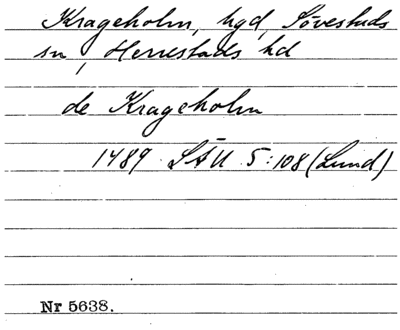 Krageholm, hgd, Sövestads
sn, Herrestads hd
de Krageholm
1489 SÄU 5:108 (Lund)
Nr 5638.